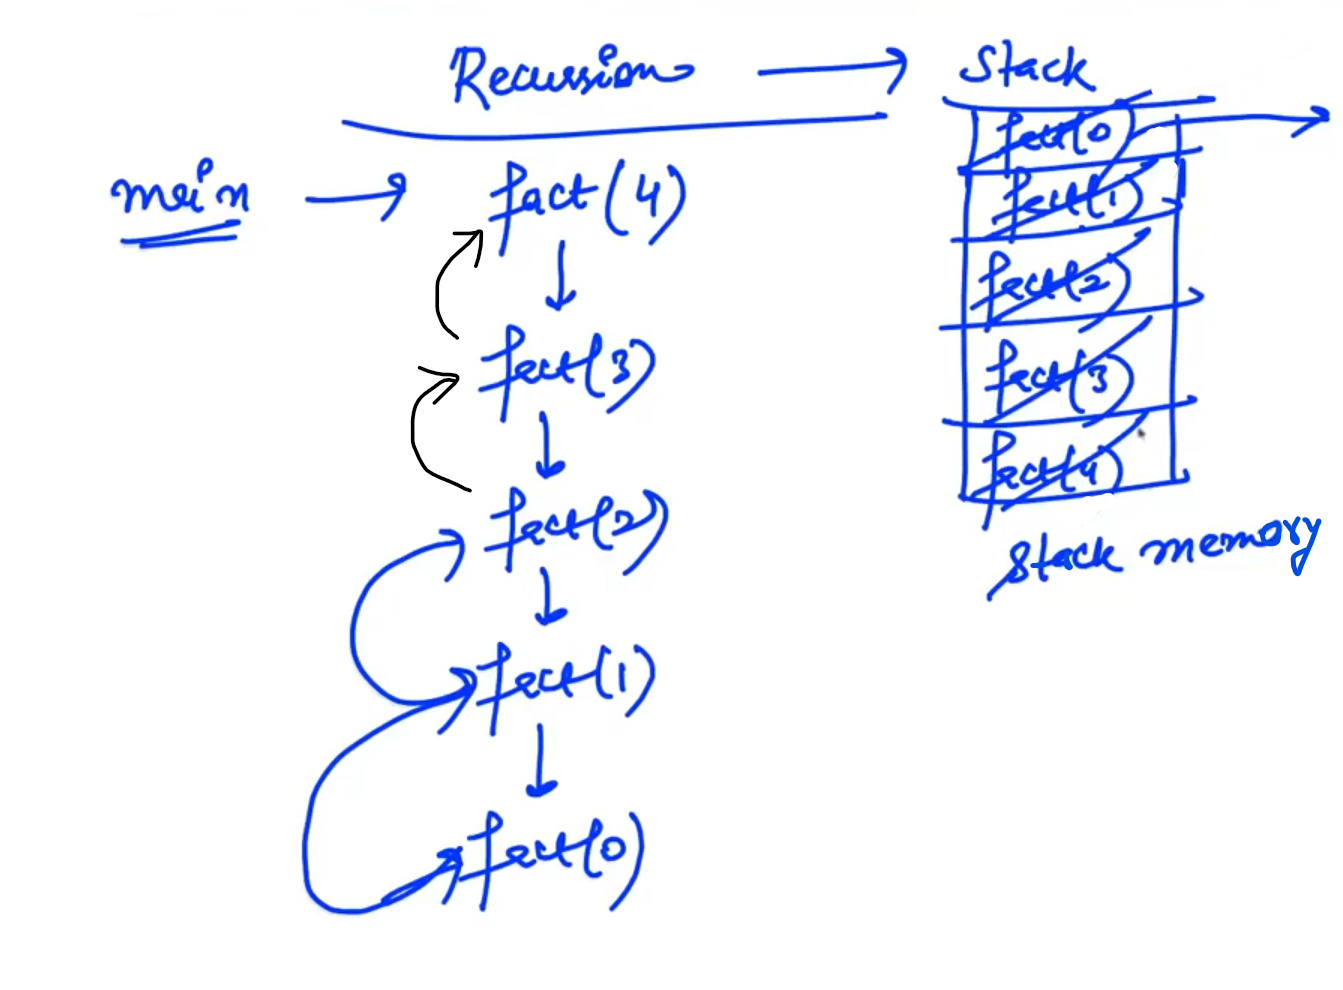 Recussion → Stack
main → fact(4)
fact(3)
fact(2)
fact(1)
fact(0)
fact(0)
fact(1)
fact(2)
fact(3)
fact(4)
Stack memory